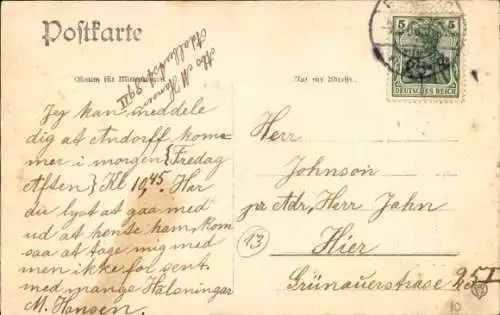 Postkarte
Raum für Mitteilungen
Nur für Adresse.
5
DEUTSCHES REICH
Abs M Hansen
Jeg kan meddele
dig at Andorff kom-
mer i morgen {Fredag
Aften} Kl 10,45. Har
du lyst at gaa med
ud at hente ham, kom
saa at tage mig med
men ikke for sent.
med mange Hälsningar
M. Hansen.
Herr
Johnson
pr Adr, Herr Jahn
13
Hier
Grünauerstrase 25 I
10